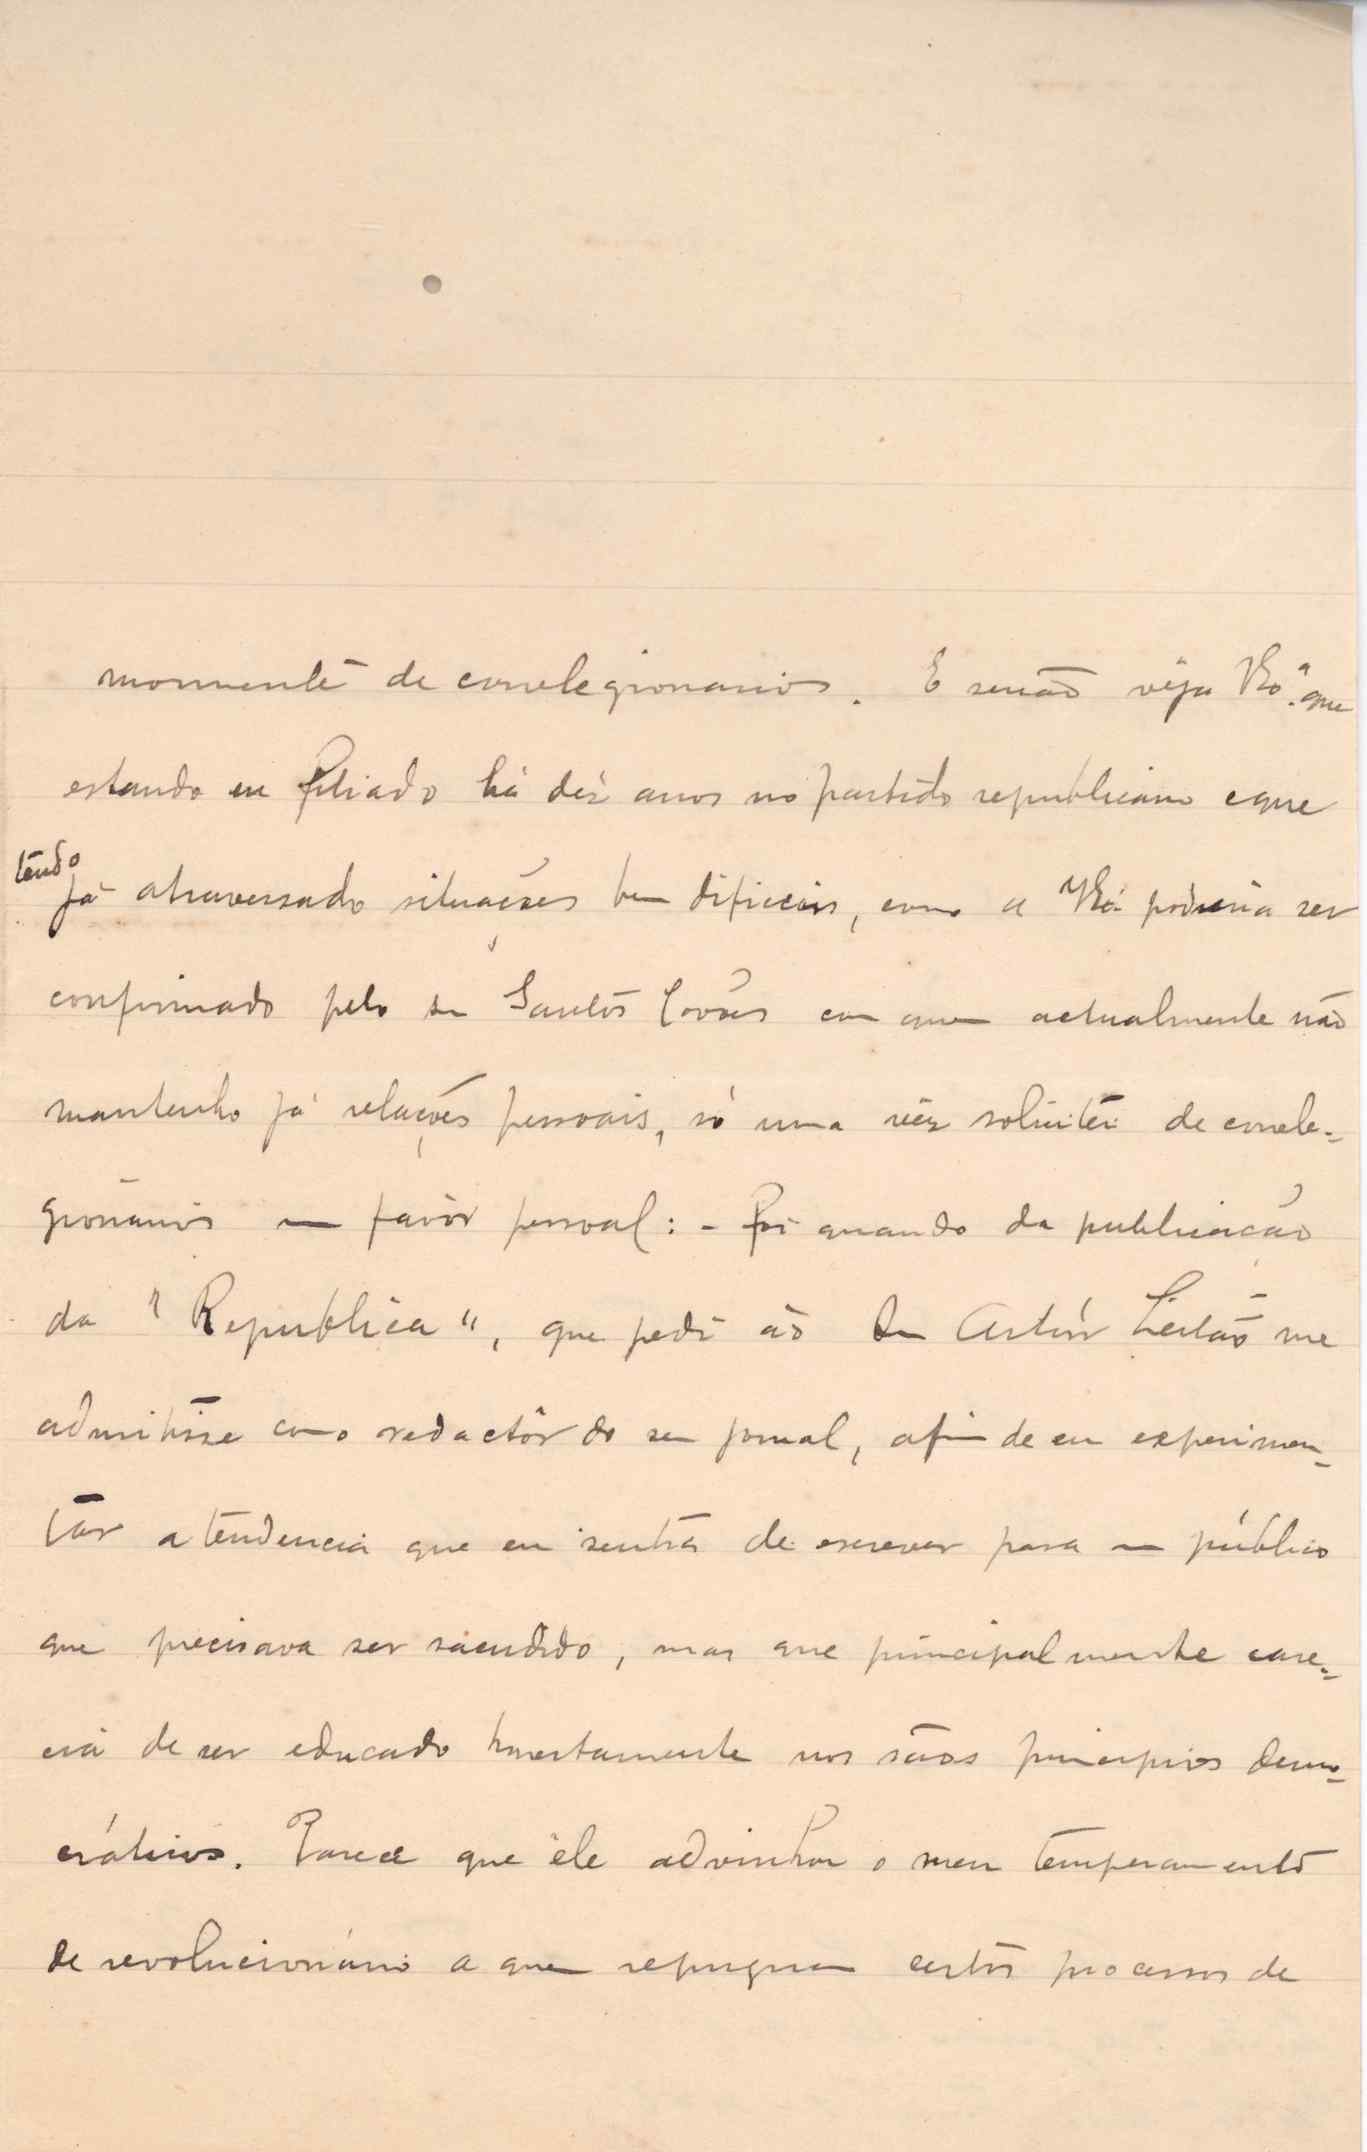 mormente de correlegionarios. E senão vêja V. Exª. que
estando eu filiado há déz anos no partido republicano e que
tendo
já atravessado situações bem dificeis, como a V. Exª poderia ser
confirmado pelo sr Santos com quem actualmente não
mantenho já relações pessoais, só uma vêz solicitei de correle-
gionários um favôr pessoal: - foi quando da publicação
da "Republica", que pedi ao Dr Artúr Leitão me
admitisse como redactôr do seu jornal, afim de eu experimen-
tar a tendencia que eu sentia de escrever para um público
que precisava ser sacudido, mas que principalmente care-
cia de ser educado honestamente nos sãos principios demo-
cráticos. Parece que êle advinhou o meu temperamento
de revolucionário a quem repugnam certos processos de